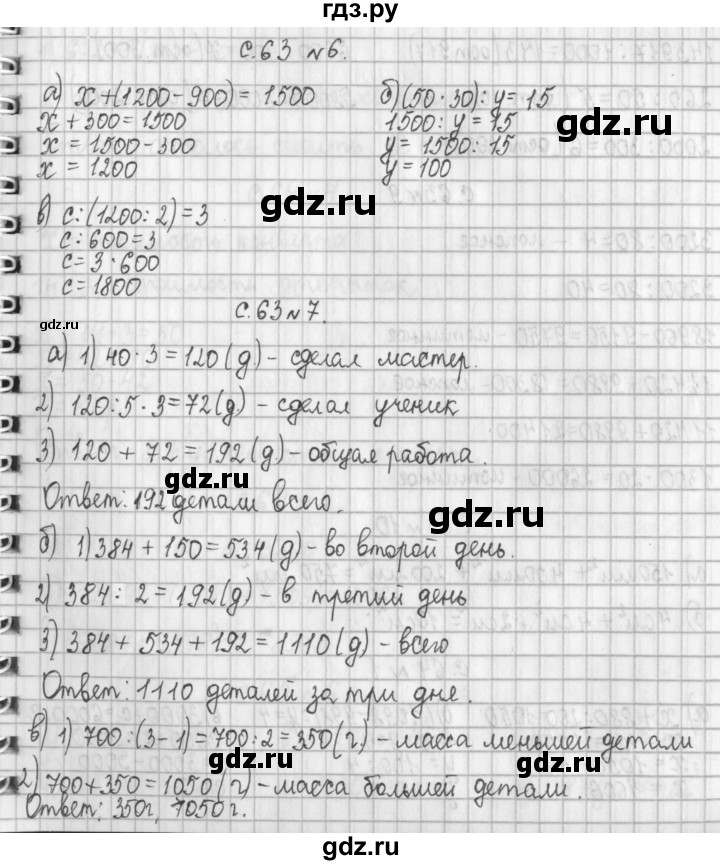 гдз.ру
с.63 №6.
а) x+(1200-900)=1500
x+300=1500
x=1500-300
x=1200
б) (50·30):y=15
1500:y=15
y=1500:15
y=100
gdz.ru
gdz.ru
в) c:(1200:2)=3
c:600=3
c=3·600
c=1800
с.63 №7.
gdz.ru
gdz.ru
а) 1) 40·3=120(д)-сделал мастер.
2) 120:5·3=72(д)-сделал ученик
3) 120+72=192(д)-общая работа.
gdz.ru
Ответ: 192 детали всего.
gdz.ru
б) 1) 384+150=534(д)-во второй день.
2) 384:2=192(д)-в третий день
3) 384+534+192=1110(д)-всего
gdz.ru
Ответ: 1110 деталей за три дне.
в) 1) 700:(3-1)=700:2=350(г.)-масса меньшей детали
gdz.ru
gdz.ru
2) 700+350=1050(г)-масса большей детали.
Ответ: 350г, 1050г.
gdz.ru